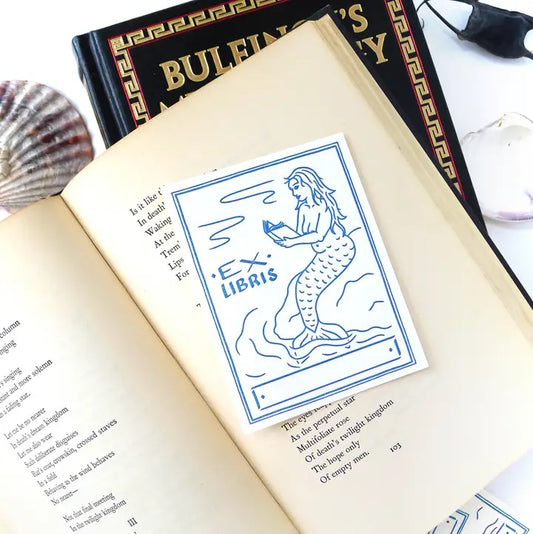 BULFINCH'S
column
singing
singing
and more solemn
star.
Let me be no nearer
In death's dream kingdom
Let me also wear
Such deliberate disguises
Rat's coat, crowskin, crossed staves
In a field
Behaving as the wind behaves
No nearer—
Not that final meeting
In the twilight kingdom
III
Is it like
In death'
Waking
At the
Trem
Lips
For
EX
LIBRIS
The eyes
As the perpetual star
Multifoliate rose
Of death's twilight kingdom
The hope only
Of empty men.
103